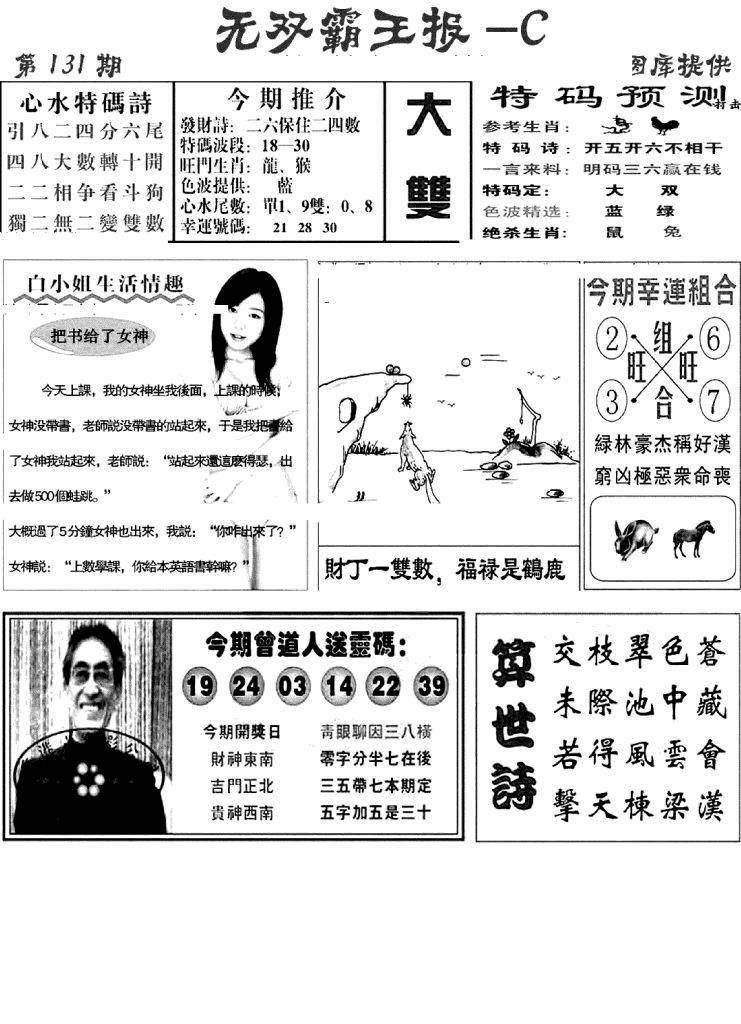 无双霸王报—C
第131期
图库提供
心水特碼詩
引八二四分六尾
四八大數轉十開
二二相争看斗狗
獨二無二變雙數
今期推介
發財詩：二六保住二四數
特碼波段：18—30
旺門生肖：龍、猴
色波提供： 藍
心水尾數：單1、9雙：0、8
幸運號碼： 21 28 30
大
雙
特码预测
参考生肖：
特码诗：开五开六不相干
一言来料：明码三六赢在钱
特码定： 大 双
色波精选： 蓝 绿
绝杀生肖： 鼠 兔
白小姐生活情趣
把书给了女神
今天上課，我的女神坐我後面，上課的時候，
女神没帶書，老師説没帶書的站起來，于是我把書給
了女神我站起來，老師説：“站起來還這麽得瑟，出
去做500個蛙跳。”
大概過了5分鐘女神也出來，我説：“你咋出來了？”
女神説：“上數學課，你給本英語書幹嘛？”
財丁一雙數，福禄是鶴鹿
今期幸運組合
2 组 6
旺 旺
3 合 7
緑林豪杰稱好漢
窮凶極惡衆命喪
今期曾道人送靈碼：
19 24 03 14 22 39
今期開獎日 青眼聊因三八橫
財神東南 零字分半七在後
吉門正北 三五帶七本期定
貴神西南 五字加五是三十
算世詩
交枝翠色蒼
未際池中藏
若得風雲會
擊天棟梁漢